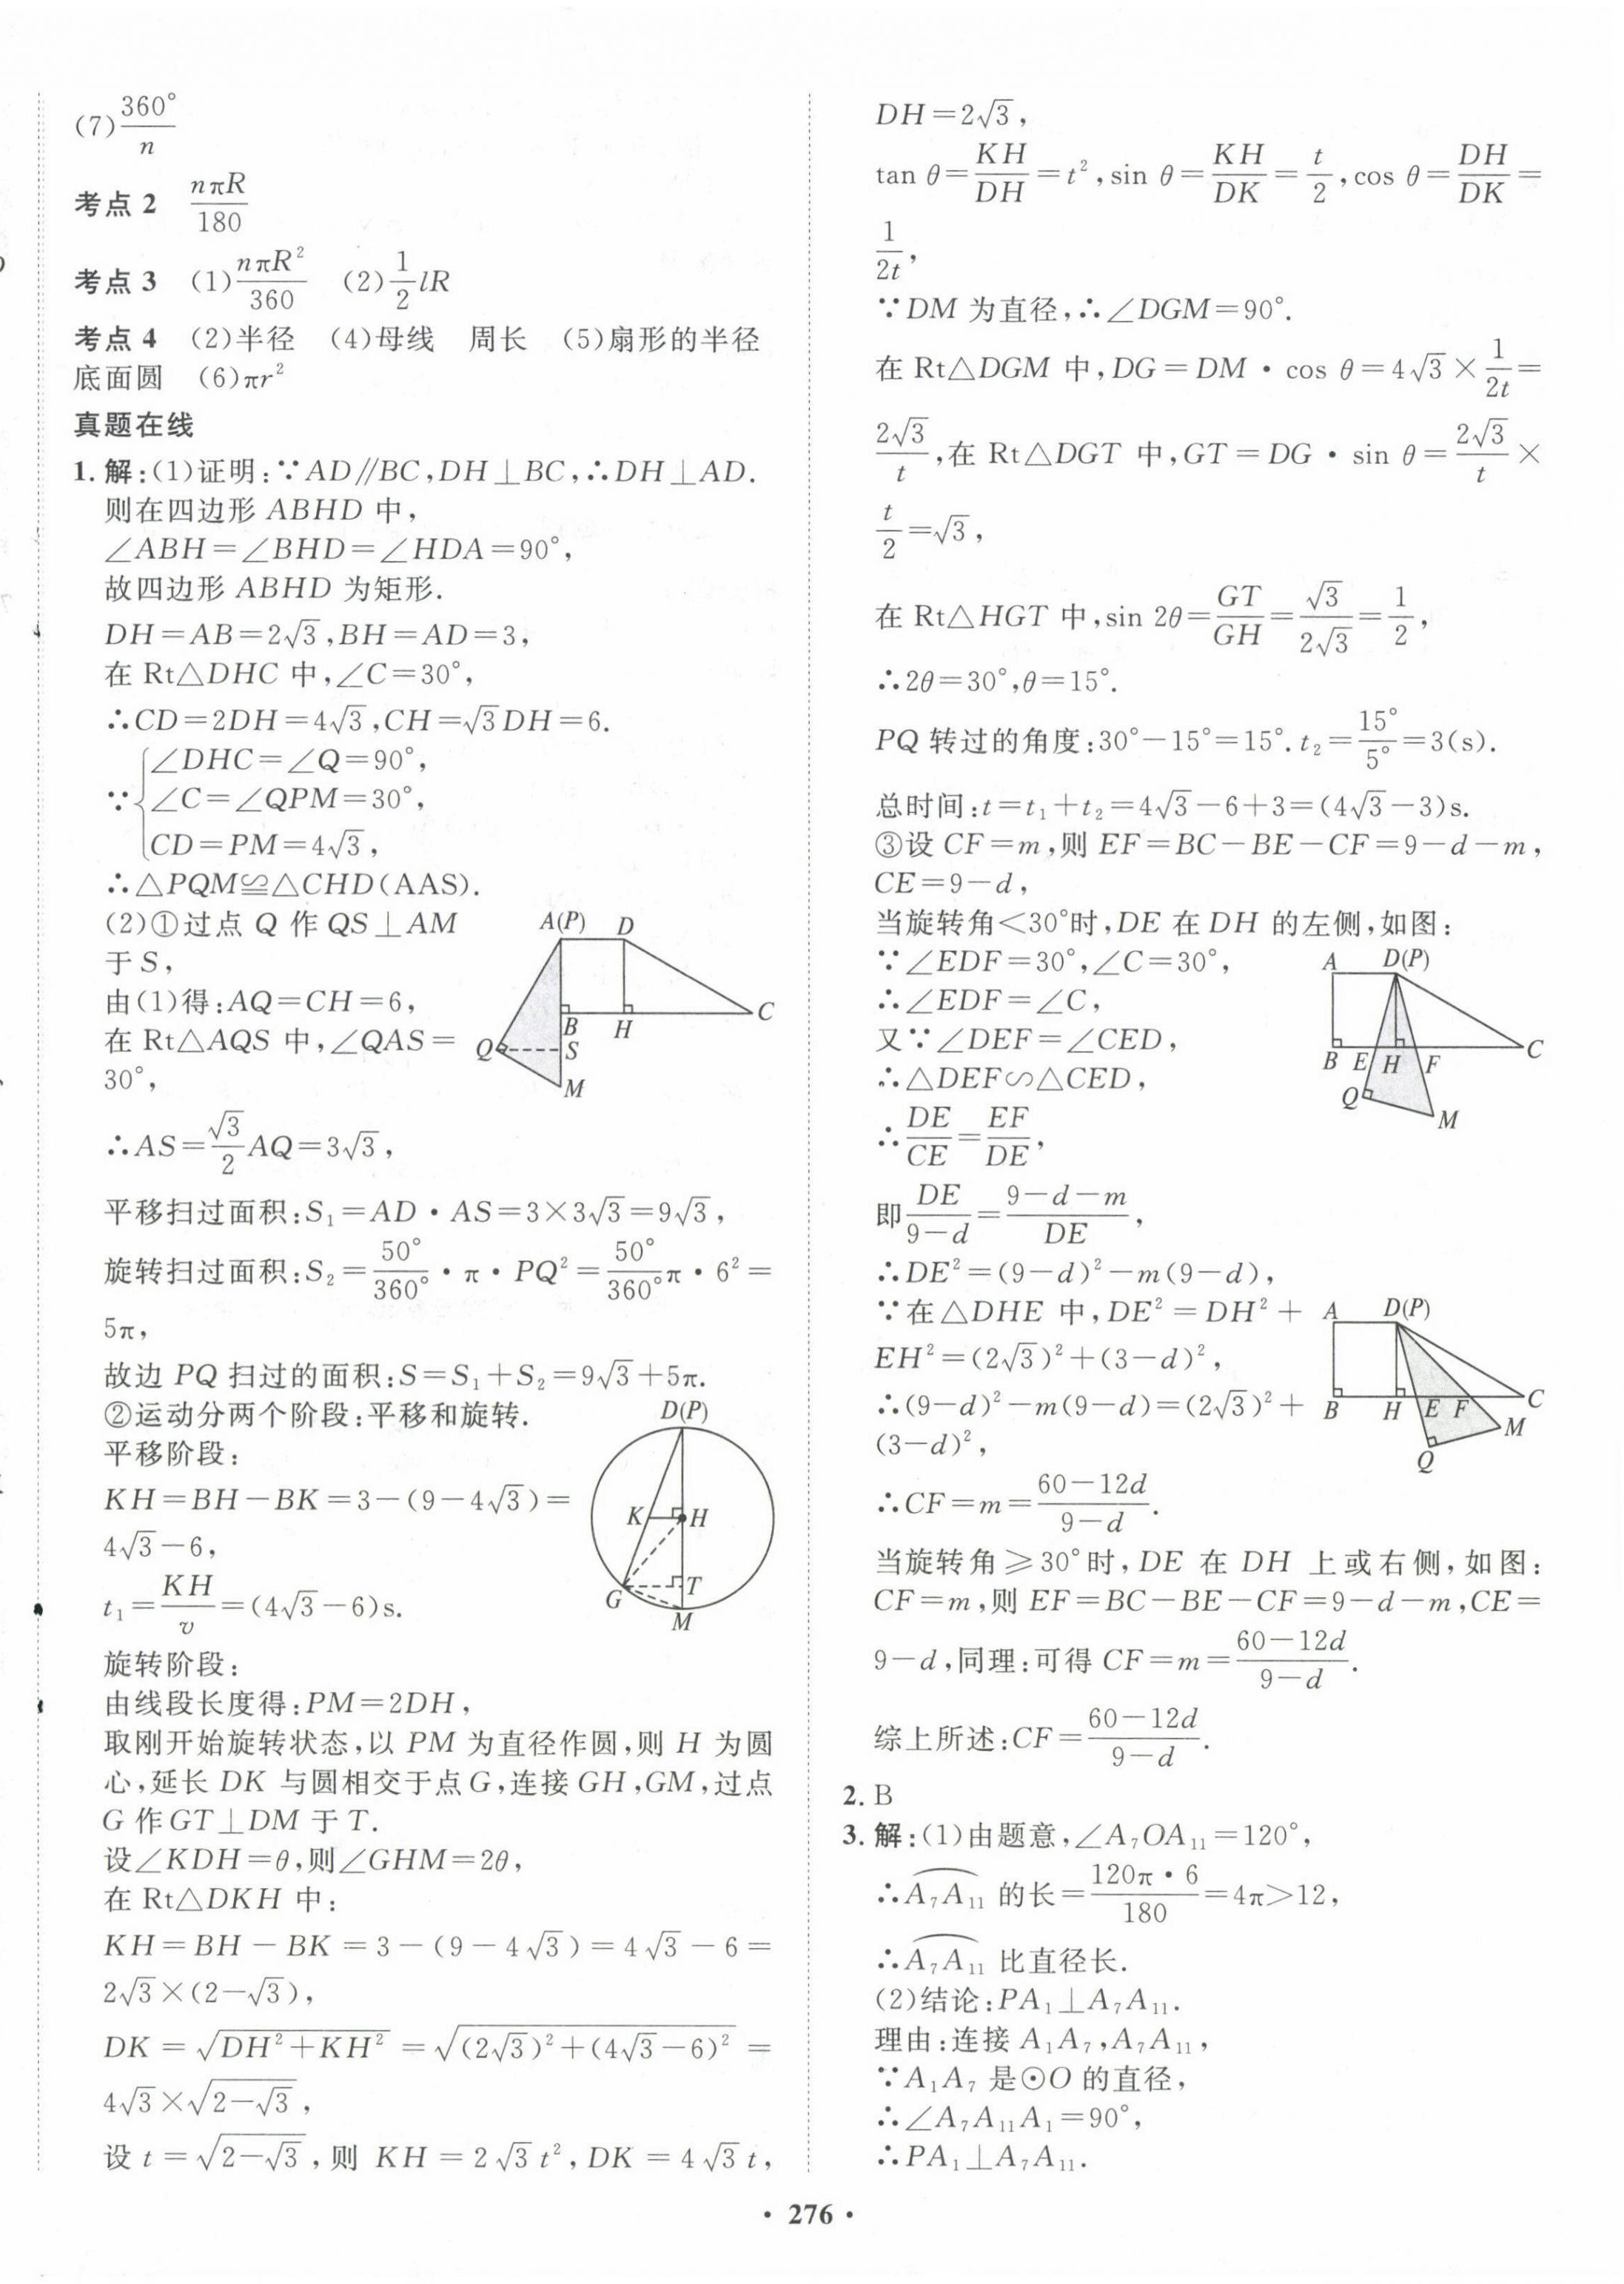 (7) 360°/n
考点 2 nπR/180
考点 3 (1) nπR²/360 (2) 1/2 lR
考点 4 (2)半径 (4)母线 周长 (5)扇形的半径
底面圆 (6)πr²
真题在线
1. 解:(1)证明:∵AD∥BC,DH⊥BC,∴DH⊥AD.
则在四边形 ABHD 中,
∠ABH=∠BHD=∠HDA=90°,
故四边形 ABHD 为矩形.
DH=AB=2√3,BH=AD=3,
在 Rt△DHC 中,∠C=30°,
∴CD=2DH=4√3,CH=√3DH=6.
∵{∠DHC=∠Q=90°,
∠C=∠QPM=30°,
CD=PM=4√3,
∴△PQM≌△CHD(AAS).
(2)①过点 Q 作 QS⊥AM
于 S,
由(1)得:AQ=CH=6,
在 Rt△AQS 中,∠QAS=
30°,
A(P) D
B H C
Q S
M
∴AS=√3/2 AQ=3√3,
平移扫过面积:S₁=AD·AS=3×3√3=9√3,
旋转扫过面积:S₂=50°/360°·π·PQ²=50°/360°π·6²=
5π,
故边 PQ 扫过的面积:S=S₁+S₂=9√3+5π.
②运动分两个阶段:平移和旋转.
平移阶段:
KH=BH-BK=3-(9-4√3)=
4√3-6,
t₁=KH/v=(4√3-6)s.
D(P)
K H
G T
M
旋转阶段:
由线段长度得:PM=2DH,
取刚开始旋转状态,以 PM 为直径作圆,则 H 为圆
心,延长 DK 与圆相交于点 G,连接 GH,GM,过点
G 作 GT⊥DM 于 T.
设∠KDH=θ,则∠GHM=2θ,
在 Rt△DKH 中:
KH=BH-BK=3-(9-4√3)=4√3-6=
2√3×(2-√3),
DK=√(DH²+KH²)=√((2√3)²+(4√3-6)²)=
4√3×√(2-√3),
设 t=√(2-√3),则 KH=2√3t²,DK=4√3t,
DH=2√3,
tan θ=KH/DH=t²,sin θ=KH/DK=t/2,cos θ=DH/DK=
1/2t,
∵DM 为直径,∴∠DGM=90°.
在 Rt△DGM 中,DG=DM·cos θ=4√3×1/2t=
2√3/t,在 Rt△DGT 中,GT=DG·sin θ=2√3/t×
t/2=√3,
在 Rt△HGT 中,sin 2θ=GT/GH=√3/2√3=1/2,
∴2θ=30°,θ=15°.
PQ 转过的角度:30°-15°=15°. t₂=15°/5°=3(s).
总时间:t=t₁+t₂=4√3-6+3=(4√3-3)s.
③设 CF=m,则 EF=BC-BE-CF=9-d-m,
CE=9-d,
当旋转角<30°时,DE 在 DH 的左侧,如图:
∵∠EDF=30°,∠C=30°,
∴∠EDF=∠C,
又∵∠DEF=∠CED,
∴△DEF∽△CED,
∴DE/CE=EF/DE,
A D(P)
B E H F C
Q M
即DE/(9-d)=(9-d-m)/DE,
∴DE²=(9-d)²-m(9-d),
∵在△DHE 中,DE²=DH²+
EH²=(2√3)²+(3-d)²,
∴(9-d)²-m(9-d)=(2√3)²+
(3-d)²,
A D(P)
B H E F C
M
Q
∴CF=m=(60-12d)/(9-d).
当旋转角≥30°时,DE 在 DH 上或右侧,如图:
CF=m,则 EF=BC-BE-CF=9-d-m,CE=
9-d,同理:可得 CF=m=(60-12d)/(9-d).
综上所述:CF=(60-12d)/(9-d).
2. B
3. 解:(1)由题意,∠A₇OA₁₁=120°,
∴A₇A₁₁⌒ 的长=120π·6/180=4π>12,
∴A₇A₁₁⌒ 比直径长.
(2)结论:PA₁⊥A₇A₁₁.
理由:连接 A₁A₇,A₇A₁₁,
∵A₁A₇ 是⊙O 的直径,
∴∠A₇A₁₁A₁=90°,
∴PA₁⊥A₇A₁₁.
· 276 ·